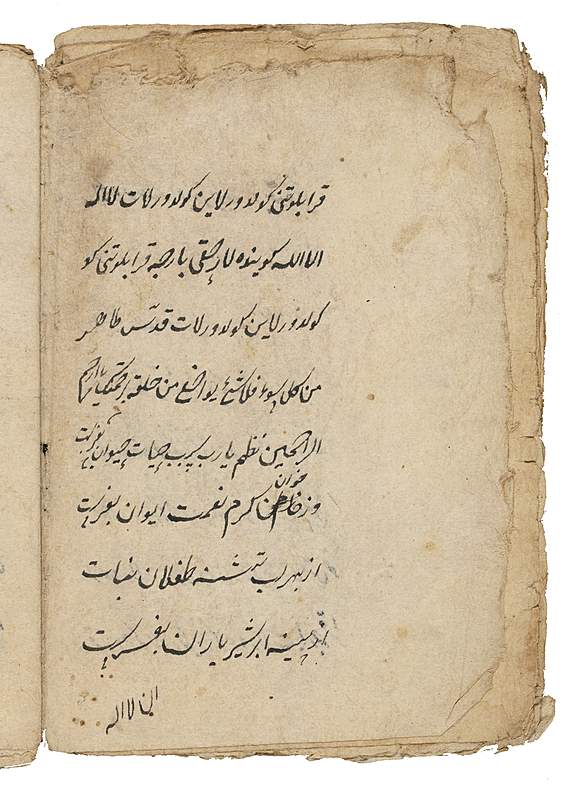 قرا بلوتنی کولدورلاین کولدورلات لا اله
الا الله کوینده لار حقی بارچه قرا بلوتنی کو
کولدورلاین کولدورلات قدس طاهر
من کل سوء فلا شیء من خلقه برحمتک یا ارحم
الراحمین نظم یارب سبب حیات حیوان بفرست
وز خوان کرم نعمت ایوان بفرست
از بهر لب تشنه طفلان نبات
از سینه ابر شیر باران بفرست
لا اله